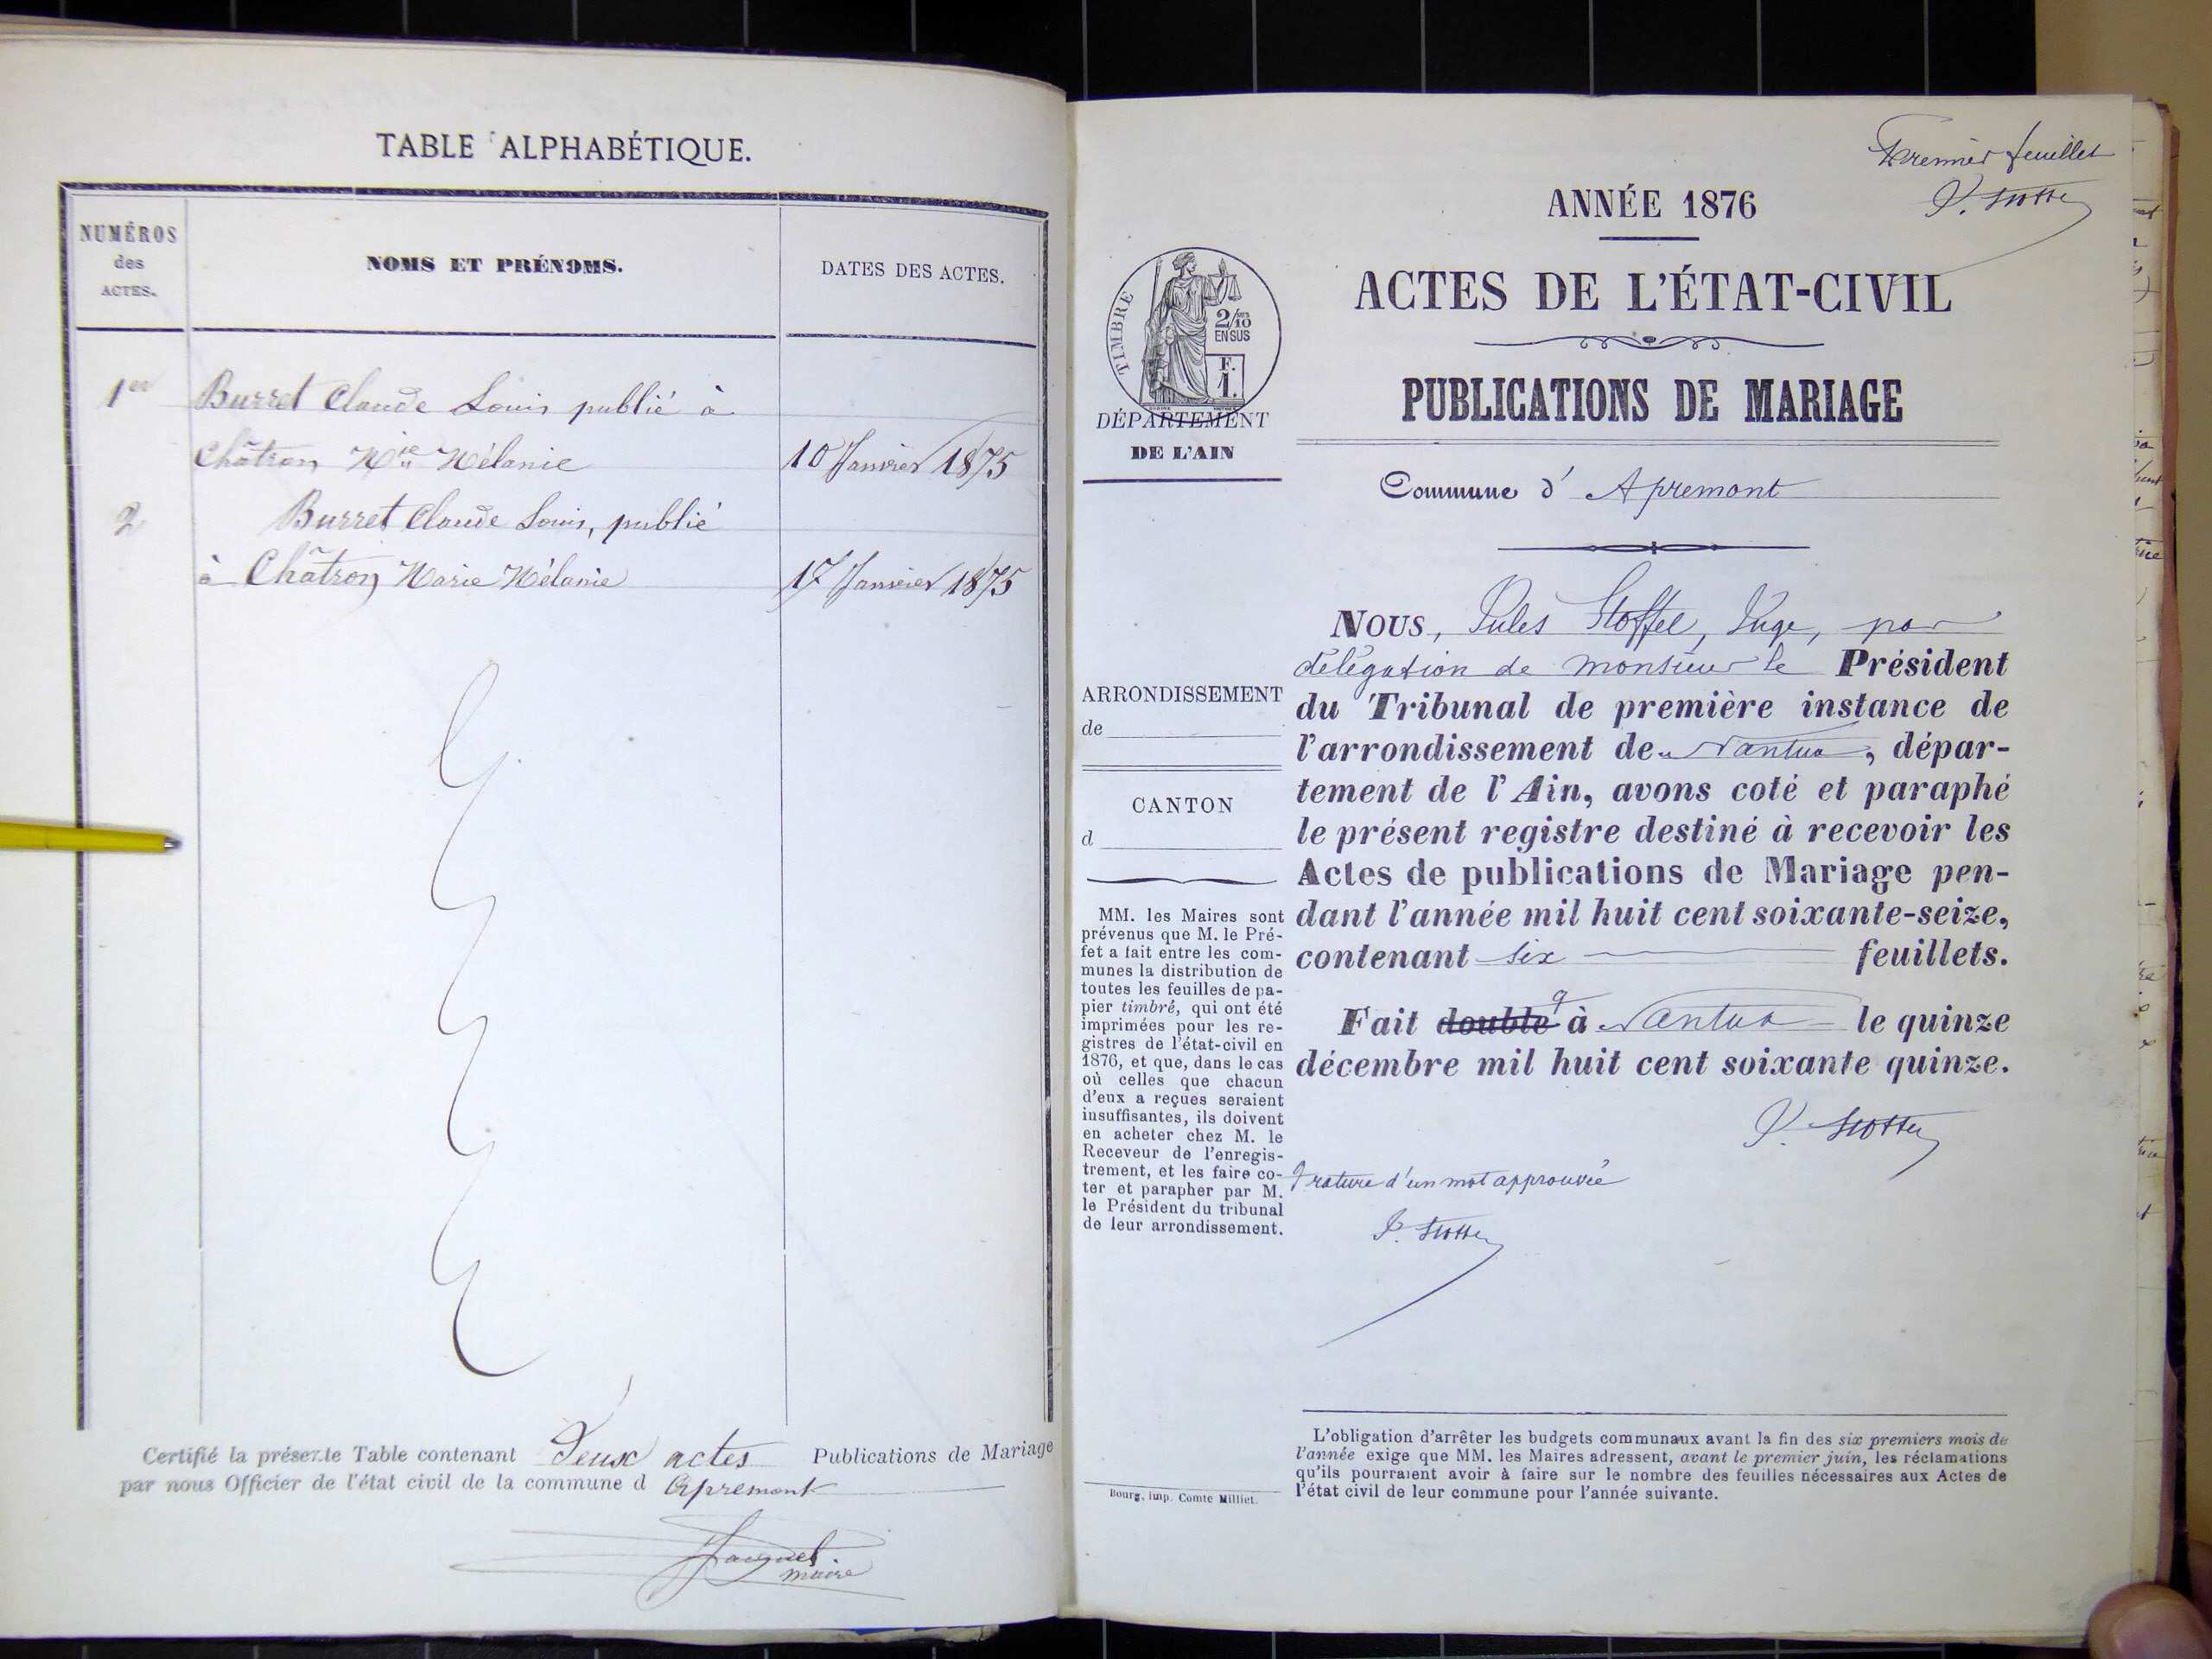 TABLE ALPHABÉTIQUE.
NUMÉROS
des
ACTES.
NOMS ET PRÉNOMS.
DATES DES ACTES.
1er Burret Claude Louis publié à
Châtron Mie Mélanie 10 Janvier 1875
2 Burret Claude Louis, publié
à Châtron Marie Mélanie 17 Janvier 1875
Certifié la présente Table contenant Deux actes Publications de Mariage
par nous Officier de l'état civil de la commune d Apremont
maire
Premier feuillet
J. Stoffel
ANNÉE 1876
ACTES DE L'ÉTAT-CIVIL
PUBLICATIONS DE MARIAGE
TIMBRE
2/10
EN SUS
F.
1.
DÉPARTEMENT
DE L'AIN
Commune d' Apremont
ARRONDISSEMENT
de
CANTON
d
MM. les Maires sont
prévenus que M. le Pré-
fet a fait entre les com-
munes la distribution de
toutes les feuilles de pa-
pier timbré, qui ont été
imprimées pour les re-
gistres de l'état-civil en
1876, et que, dans le cas
où celles que chacun
d'eux a reçues seraient
insuffisantes, ils doivent
en acheter chez M. le
Receveur de l'enregis-
trement, et les faire co-
ter et parapher par M.
le Président du tribunal
de leur arrondissement.
NOUS, Jules Stoffel, Juge, par
délégation de monsieur le Président
du Tribunal de première instance de
l'arrondissement de Nantua, dépar-
tement de l'Ain, avons coté et paraphé
le présent registre destiné à recevoir les
Actes de publications de Mariage pen-
dant l'année mil huit cent soixante-seize,
contenant six feuillets.
Fait double à Nantua le quinze
décembre mil huit cent soixante quinze.
J. Stoffel
rature d'un mot approuvée
J. Stoffel
L'obligation d'arrêter les budgets communaux avant la fin des six premiers mois de
l'année exige que MM. les Maires adressent, avant le premier juin, les réclamations
qu'ils pourraient avoir à faire sur le nombre des feuilles nécessaires aux Actes de
l'état civil de leur commune pour l'année suivante.
Bourg, imp. Comte Milliet.